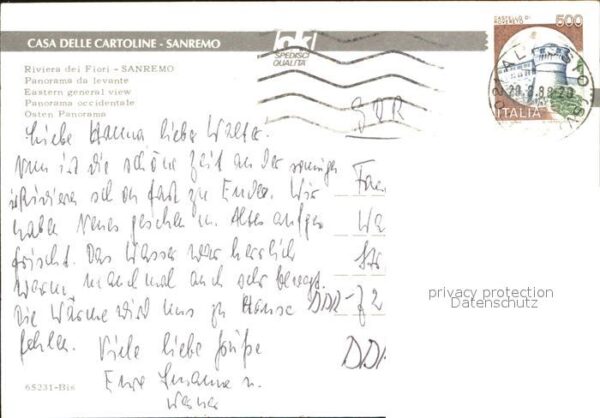 CASA DELLE CARTOLINE - SANREMO
SPEDISCI
QUALITÀ
CASTELLO DI
ROVERETO
500
ITALIA
Riviera dei Fiori - SANREMO
Panorama da levante
Eastern general view
Panorama occidentale
Osten Panorama
Liebe Hanna lieber Walter.
Nun ist die schöne Zeit an der sonnigen
Riviera schon fast zu Ende. Wir
haben Neues gesehen u. Altes aufge
frischt. Das Wasser war herrlich
warm manchmal auch sehr bewegt.
Die Wärme wird uns zu Hause
fehlen. Viele liebe Grüße
Eure Susanne u.
Werner
Fa
Wa
St
DDR-
DD
privacy protection
Datenschutz
65231-Bis